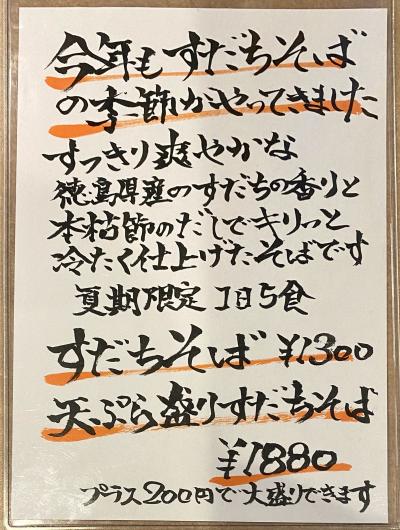 今年もすだちそば
の季節がやってきました
すっきり爽やかな
徳島県産のすだちの香りと
本枯節のだしでキリっと
冷たく仕上げたそばです
夏期限定 1日5食
すだちそば ¥1300
天ぷら盛りすだちそば
¥1880
プラス200円で大盛りできます